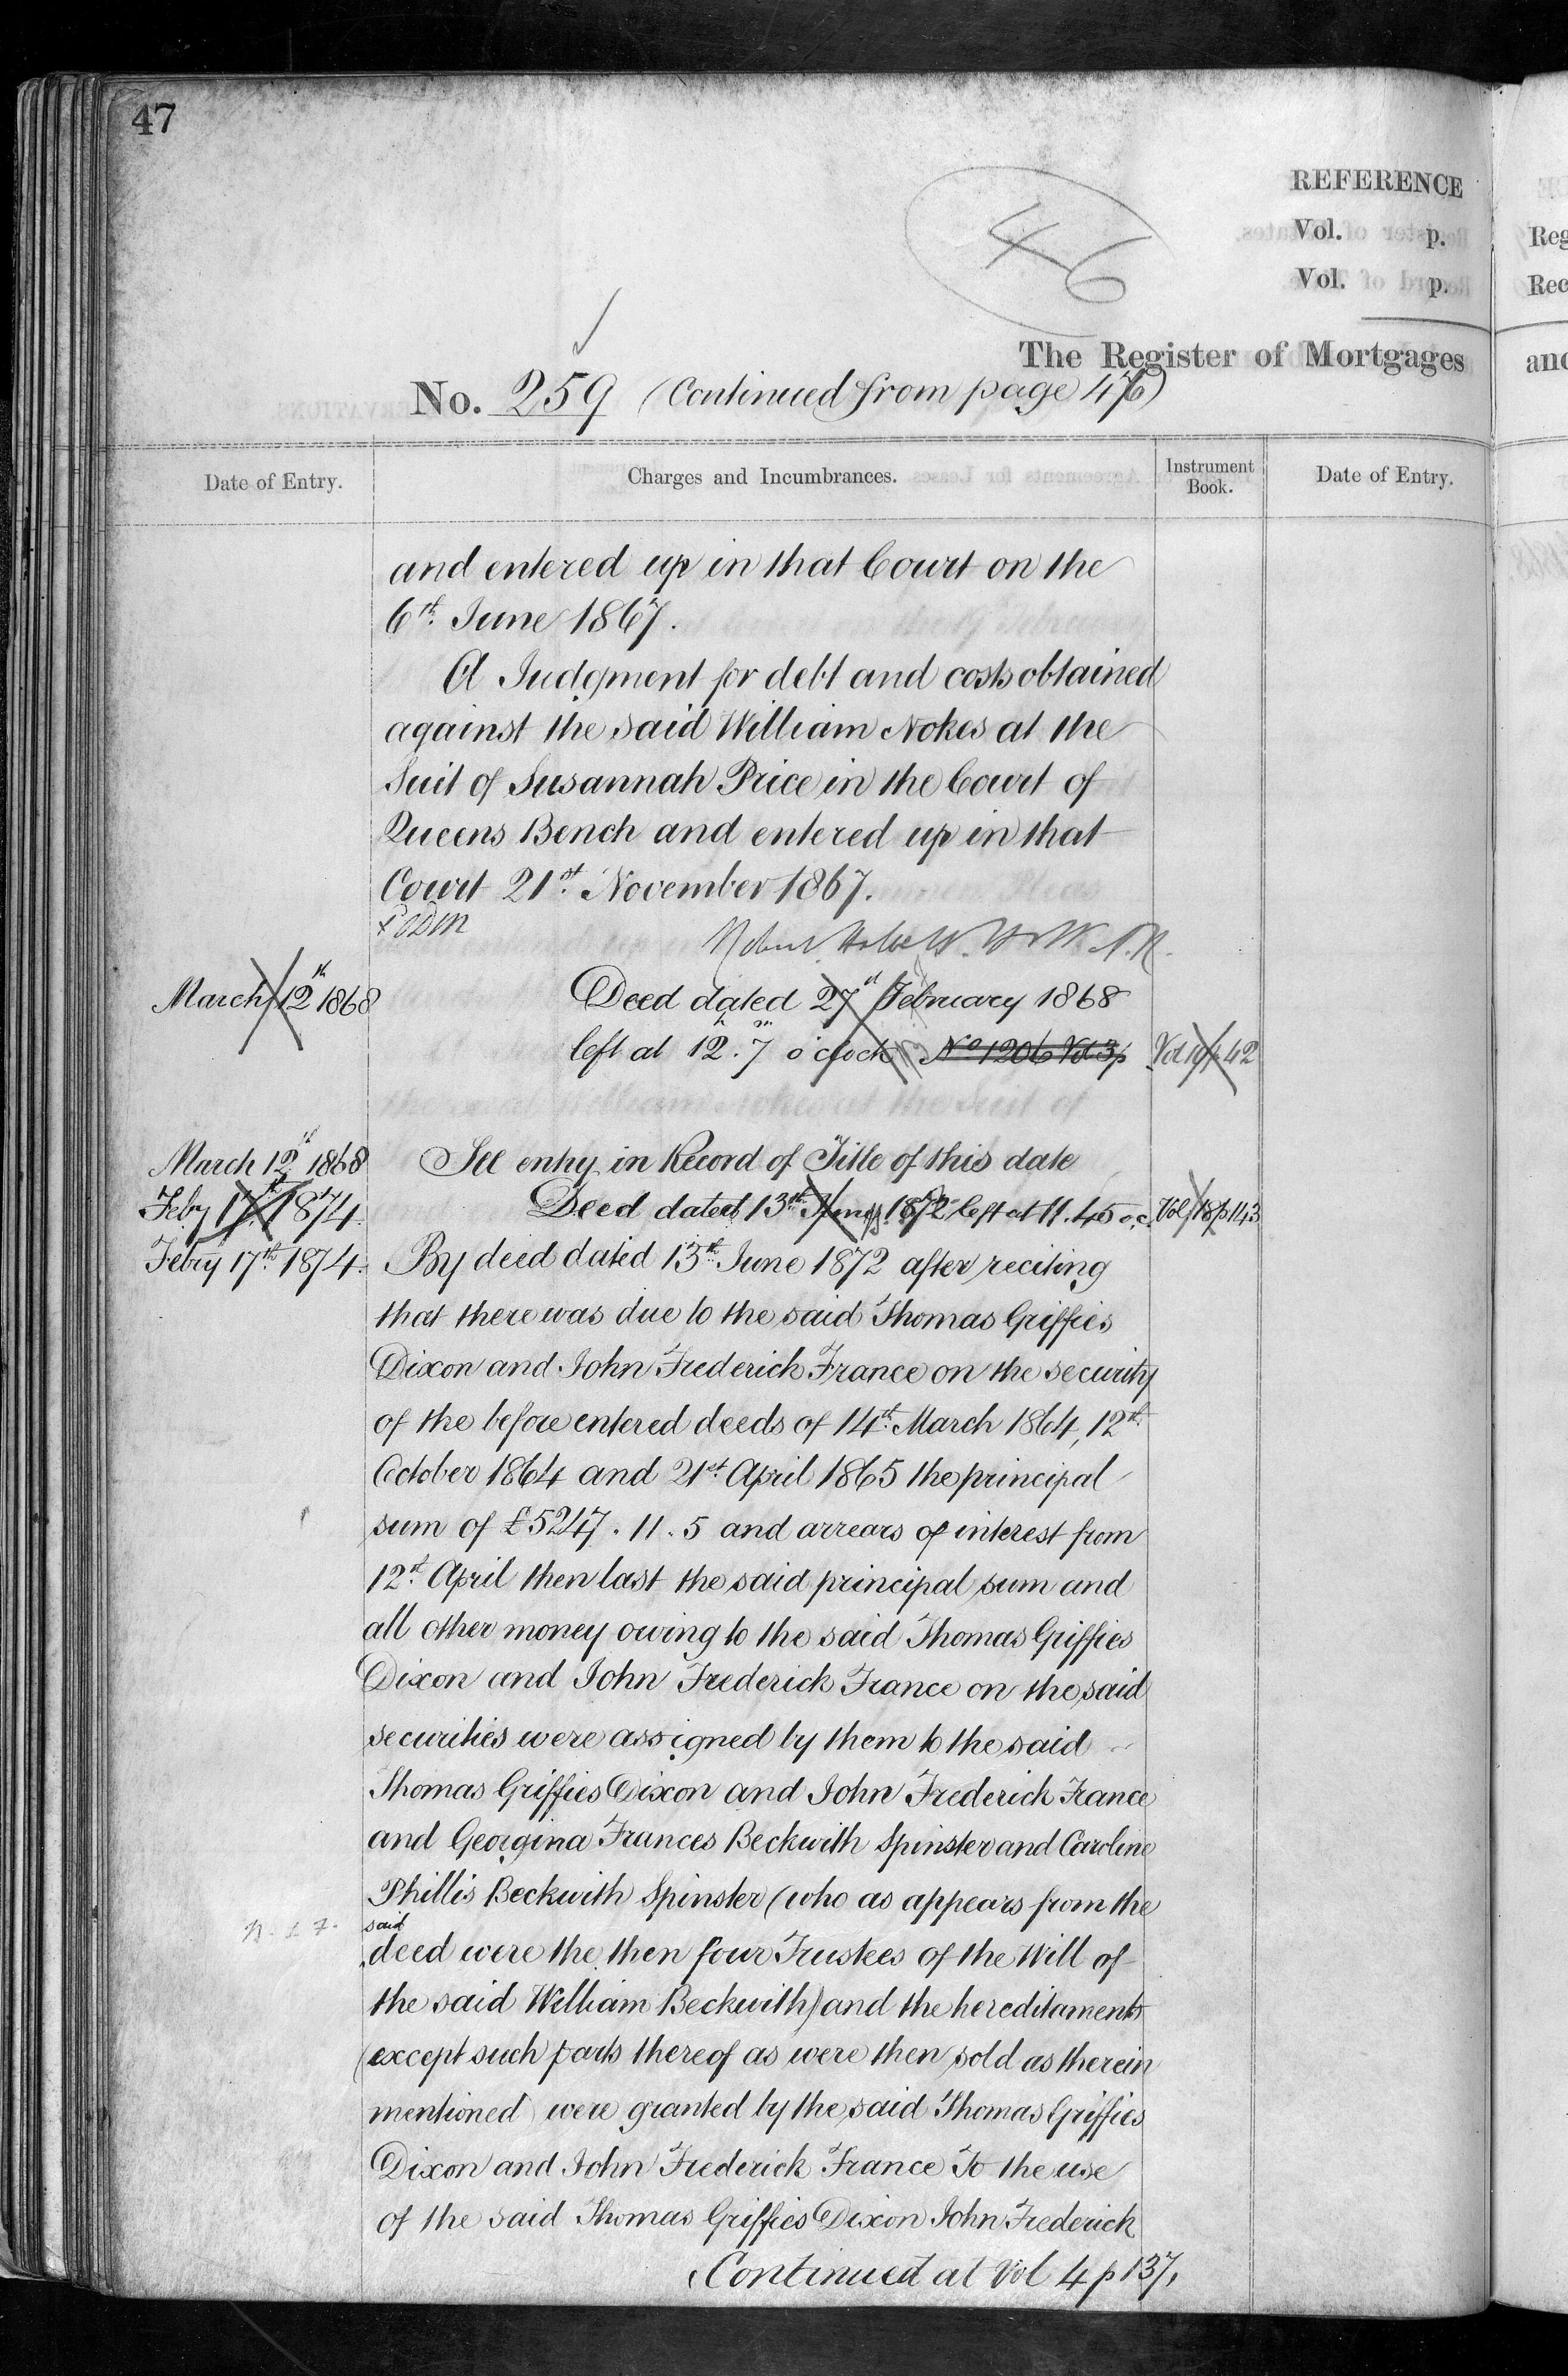 47
46
REFERENCE
Vol. p.
Vol. p.
The Register of Mortgages
No. 259 (Continued from page 46)
Date of Entry.
Charges and Incumbrances.
Instrument Book.
Date of Entry.
and entered up in that Court on the
6th. June 1867.
A Judgment for debt and costs obtained
against the said William Nokes at the
Suit of Susannah Price in the Court of
Queens Bench and entered up in that
Court 21st. November 1867.
March 12th 1868 Deed dated 27th February 1868
left at 12. 7 o'clock No 1206 Vol 3 p Vol 10 p 42
March 12th 1868 See entry in Record of Title of this date
Feby 17th 1874. Deed dated 13th June 1872 left at 11.45 o.c. Vol 18 p 143
Febry 17th 1874. By deed dated 13th June 1872 after reciting
that there was due to the said Thomas Griffies
Dixon and John Frederick France on the security
of the before entered deeds of 14th. March 1864, 12th.
October 1864 and 21st. April 1865 the principal
sum of £5247. 11. 5 and arrears of interest from
12th. April then last the said principal sum and
all other money owing to the said Thomas Griffies
Dixon and John Frederick France on the said
securities were assigned by them to the said
Thomas Griffies Dixon and John Frederick France
and Georgina Frances Beckwith Spinster and Caroline
Phillis Beckwith Spinster (who as appears from the
said
deed were the then four Trustees of the Will of
the said William Beckwith) and the hereditaments
(except such parts thereof as were then sold as therein
mentioned) were granted by the said Thomas Griffies
Dixon and John Frederick France To the use
of the said Thomas Griffies Dixon John Frederick
Continued at Vol 4 p 137,